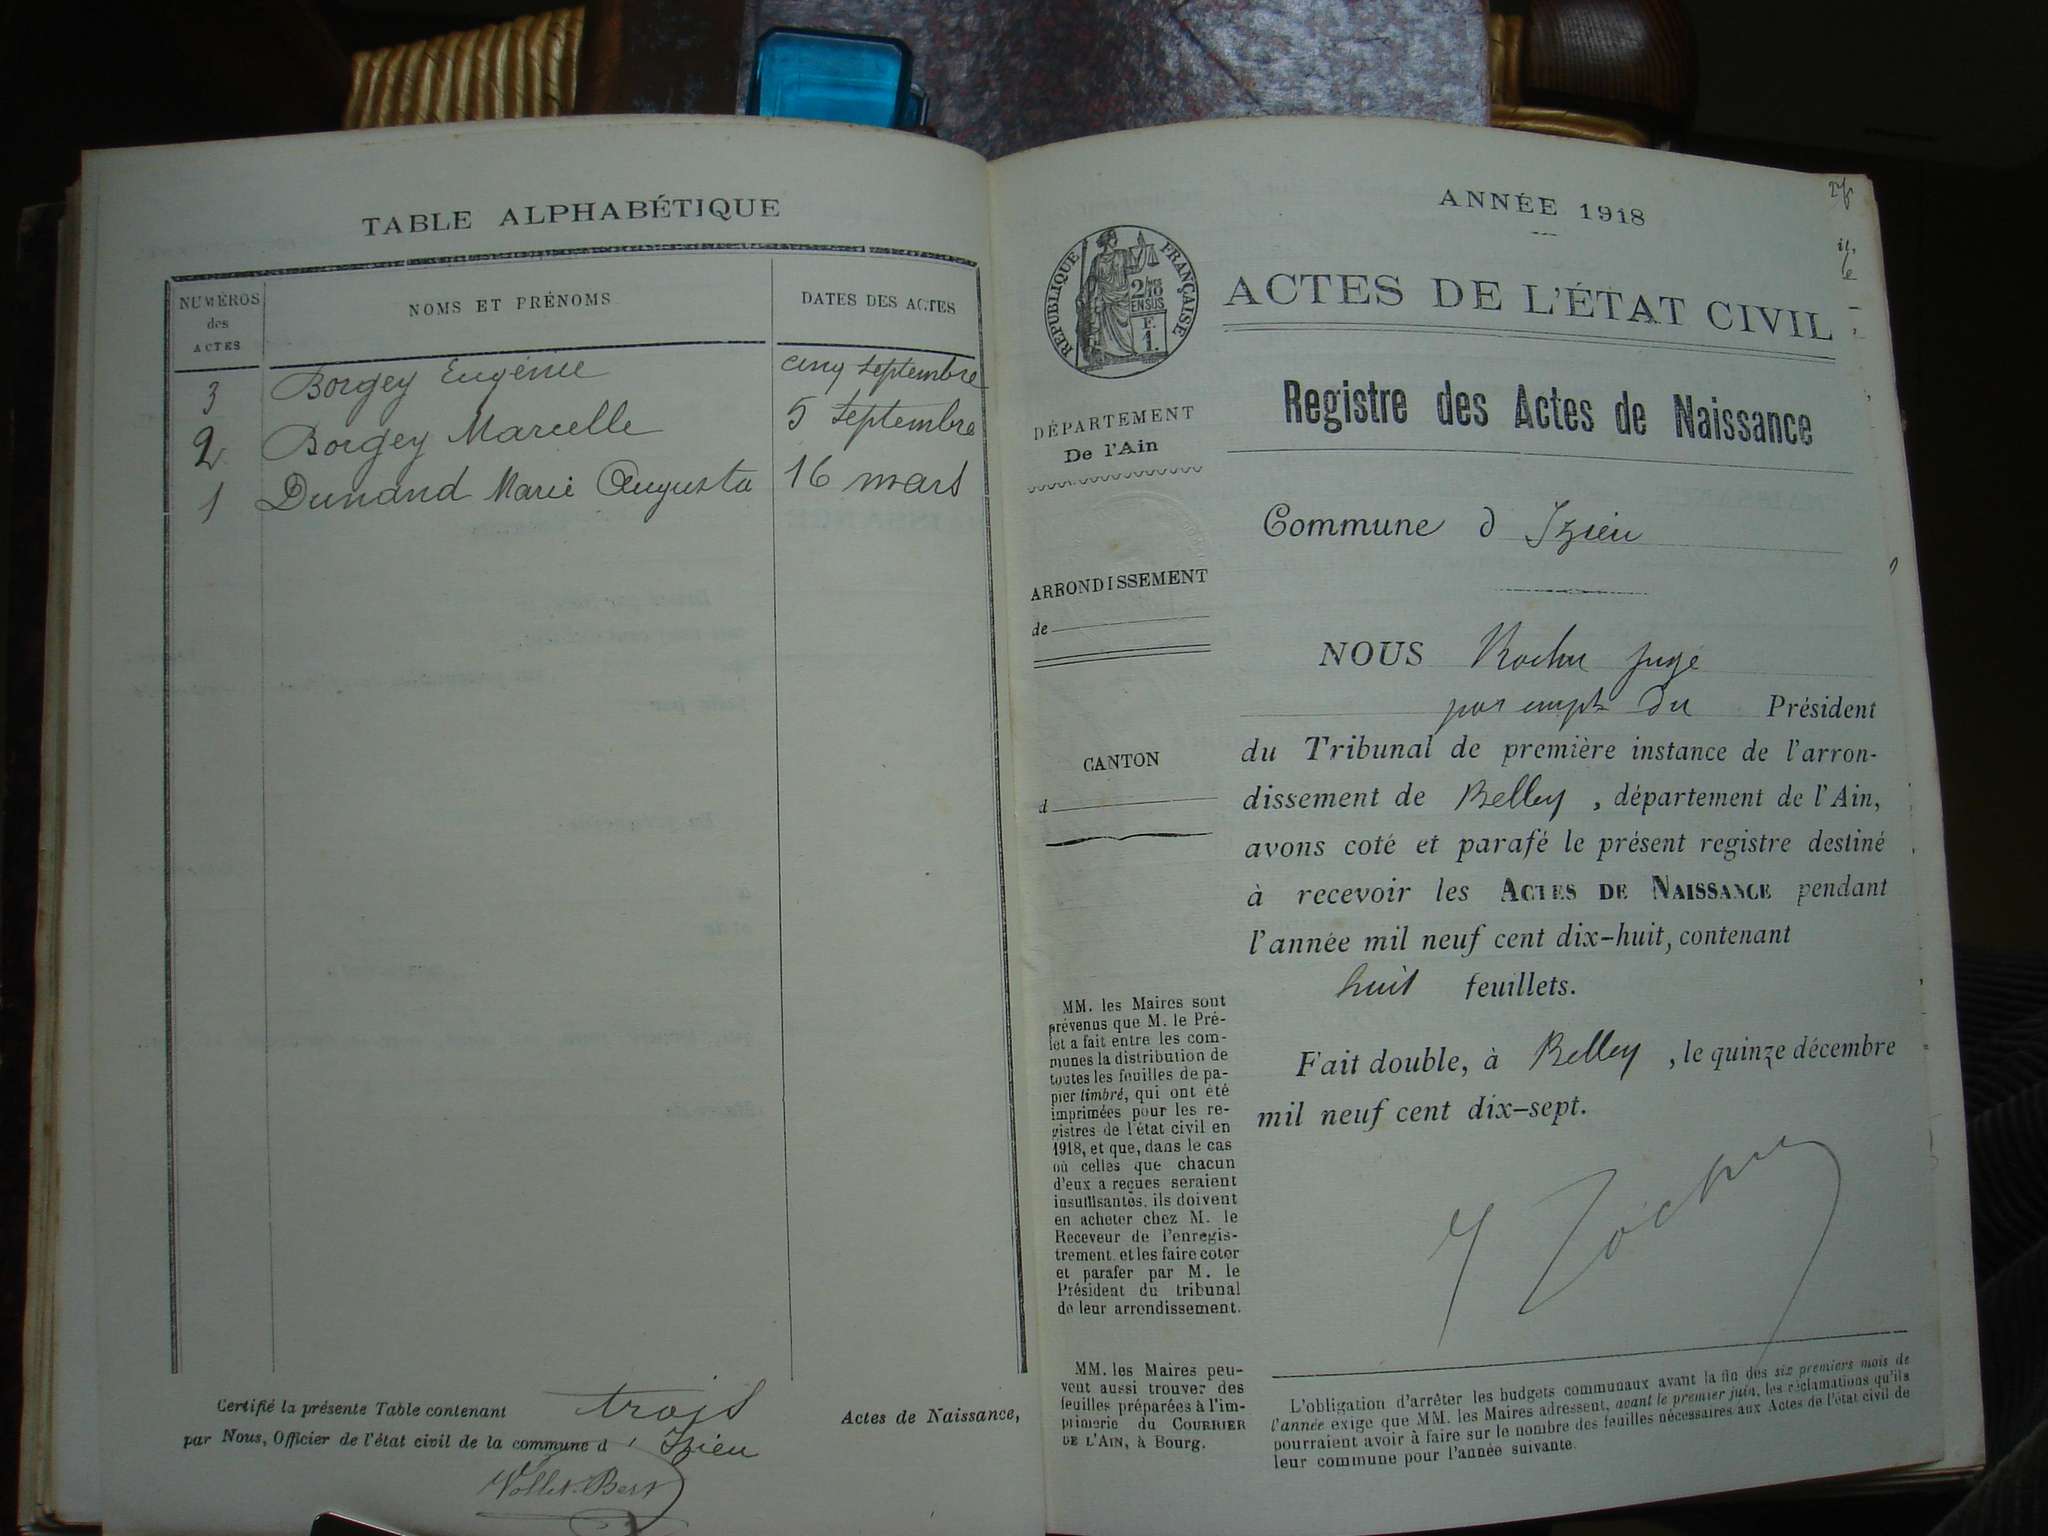 TABLE ALPHABÉTIQUE
NUMÉROS
des
ACTES
NOMS ET PRÉNOMS
DATES DES ACTES
3 Borgey Eugénie cinq septembre
2 Borgey Marcelle 5 septembre
1 Dunand Marie Augusta 16 mars
Certifié la présente Table contenant trois Actes de Naissance,
par Nous, Officier de l'état civil de la commune d' Izieu
Vollet-Bert
ANNÉE 1918
RÉPUBLIQUE FRANÇAISE
2/10
EN SUS
F.
1.
ACTES DE L'ÉTAT CIVIL
Registre des Actes de Naissance
DÉPARTEMENT
De l'Ain
Commune d Izieu
ARRONDISSEMENT
de
CANTON
d
NOUS juge
par empt du Président
du Tribunal de première instance de l'arron-
dissement de Belley, département de l'Ain,
avons coté et parafé le présent registre destiné
à recevoir les ACTES DE NAISSANCE pendant
l'année mil neuf cent dix-huit, contenant
huit feuillets.
Fait double, à Belley, le quinze décembre
mil neuf cent dix-sept.
MM. les Maires sont
prévenus que M. le Pré-
fet a fait entre les com-
munes la distribution de
toutes les feuilles de pa-
pier timbré, qui ont été
imprimées pour les re-
gistres de l'état civil en
1918, et que, dans le cas
où celles que chacun
d'eux a reçues seraient
insuffisantes, ils doivent
en acheter chez M. le
Receveur de l'enregis-
trement, et les faire coter
et parafer par M. le
Président du tribunal
de leur arrondissement.
MM. les Maires peu-
vent aussi trouver des
feuilles préparées à l'im-
primerie du COURRIER
DE L'AIN, à Bourg.
L'obligation d'arrêter les budgets communaux avant la fin des six premiers mois de
l'année exige que MM. les Maires adressent, avant le premier juin, les réclamations qu'ils
pourraient avoir à faire sur le nombre des feuilles nécessaires aux Actes de l'état civil de
leur commune pour l'année suivante.